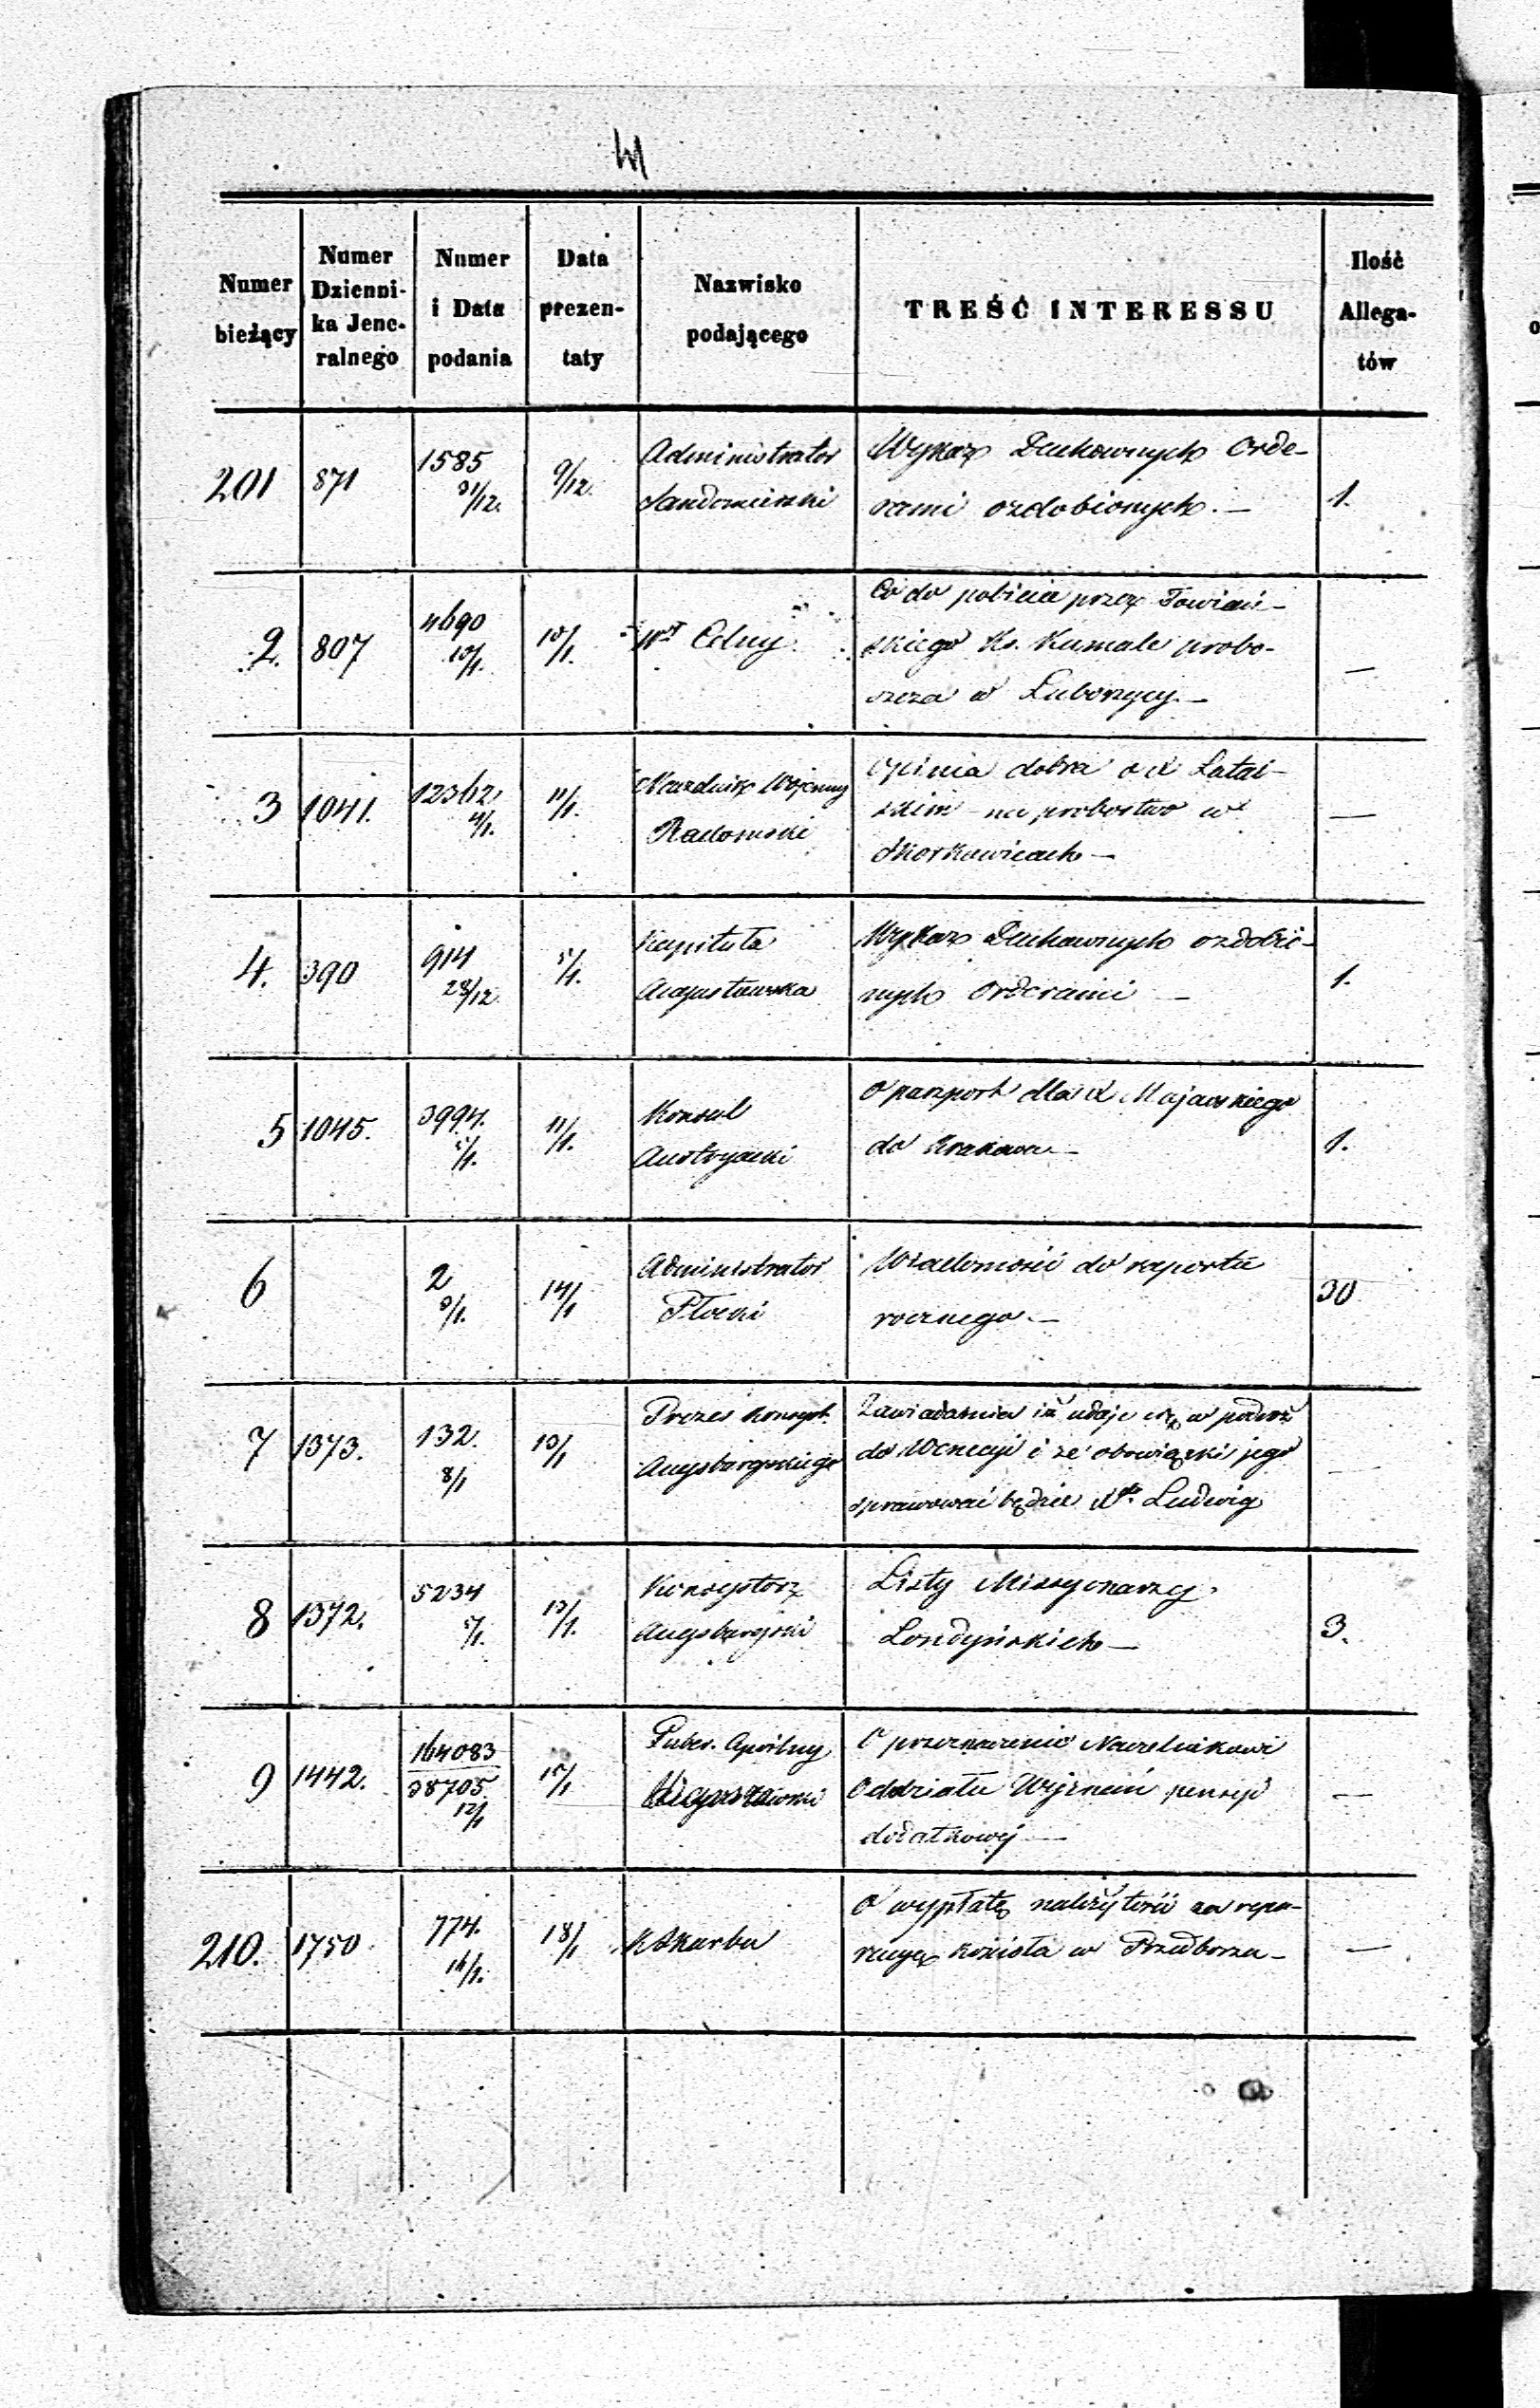 Numer bieżący | Numer Dzienni-ka Jene-ralnego | Numer i Data podania | Data prezen-taty | Nazwisko podającego | TREŚĆ INTERESSU | Ilość Allega-tów
201 | 871 | 1585 31/12. | 9/12. | Administrator Sandomierski | Wykaz Duchownych Orde-
rami ozdobionych. — | 1.
2. | 807 | 4690 10/1. | 10/1. | Celny | Co do pobicia przez Towiań-
skiego Ks. Kumale probo-
szcza w Luborzycy — | —
3 | 1041. | 12362, 4/1. | 11/1. | Naczelnik Wojenny Radomski | opinia dobra o X Latal-
skim na probostwo w
Skorkowicach — | —
4. | 390 | 914 28/12. | 5/1. | Kapituła Augustowska | Wykaz Duchownych ozdobio-
nych Orderami — | 1.
5 | 1045. | 3994. 5/1. | 11/1. | Konsul Austryacki | o paszport dla X Majewskiego
do Krakowa — | 1.
6 | 2 3/1. | 14/1 | Administrator Płocki | Wiadomości do raportu
rocznego. — | 30
7 | 1373. | 132. 8/1 | 13/1 | Prezes Konsyst. Augsburgskiego | Zawiadamia iż udaje się w podróż
do Wenecyi i że obowiązki jego
sprawować będzie Ludwig
8 | 1372. | 5234 5/1. | 13/1. | Konsystorz Augsburgski | Listy Missyonarzy
Londyńskich — | 3.
9 | 1442. | 164083 38705. 12/1 | 15/1 | Guber. Cywilny Augustowski | O przeznaczenie
Oddziału Wyznań pensyi
dodatkowéj — | —
210. | 1750. | 774. 16/1. | 18/1 | K Skarbu | o wypłatę należytości za repa-
racyę kościoła w Przedborzu — | —